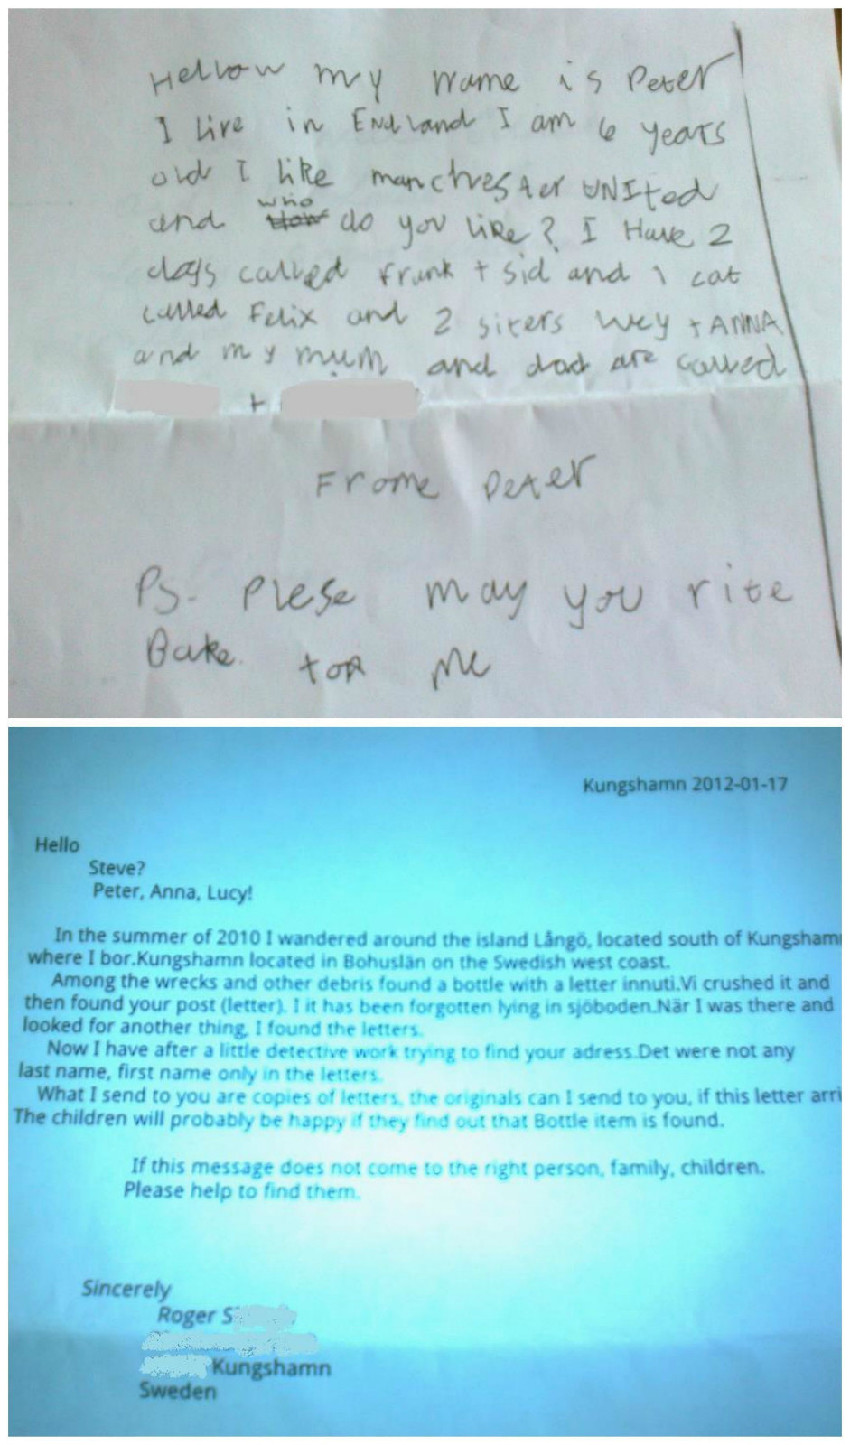 Hellow my Name is Peter
I live in England I am 6 years
old I like manchester UNIted
and who do you like? I Have 2
dogs called frank + sid and 1 cat
called Felix and 2 sisers lucy + ANNA
and my mum and dad are called
+
Frome Peter
Ps. Plese may you rite
Bake to me
Kungshamn 2012-01-17
Hello
Steve?
Peter, Anna, Lucy!
In the summer of 2010 I wandered around the island Långö, located south of Kungshamn
where I bor.Kungshamn located in Bohuslän on the Swedish west coast.
Among the wrecks and other debris found a bottle with a letter innuti.Vi crushed it and
then found your post (letter). I it has been forgotten lying in sjöboden.När I was there and
looked for another thing, I found the letters.
Now I have after a little detective work trying to find your adress.Det were not any
last name, first name only in the letters.
What I send to you are copies of letters, the originals can I send to you, if this letter arri
The children will probably be happy if they find out that Bottle item is found.
If this message does not come to the right person, family, children.
Please help to find them.
Sincerely
Roger S
Kungshamn
Sweden